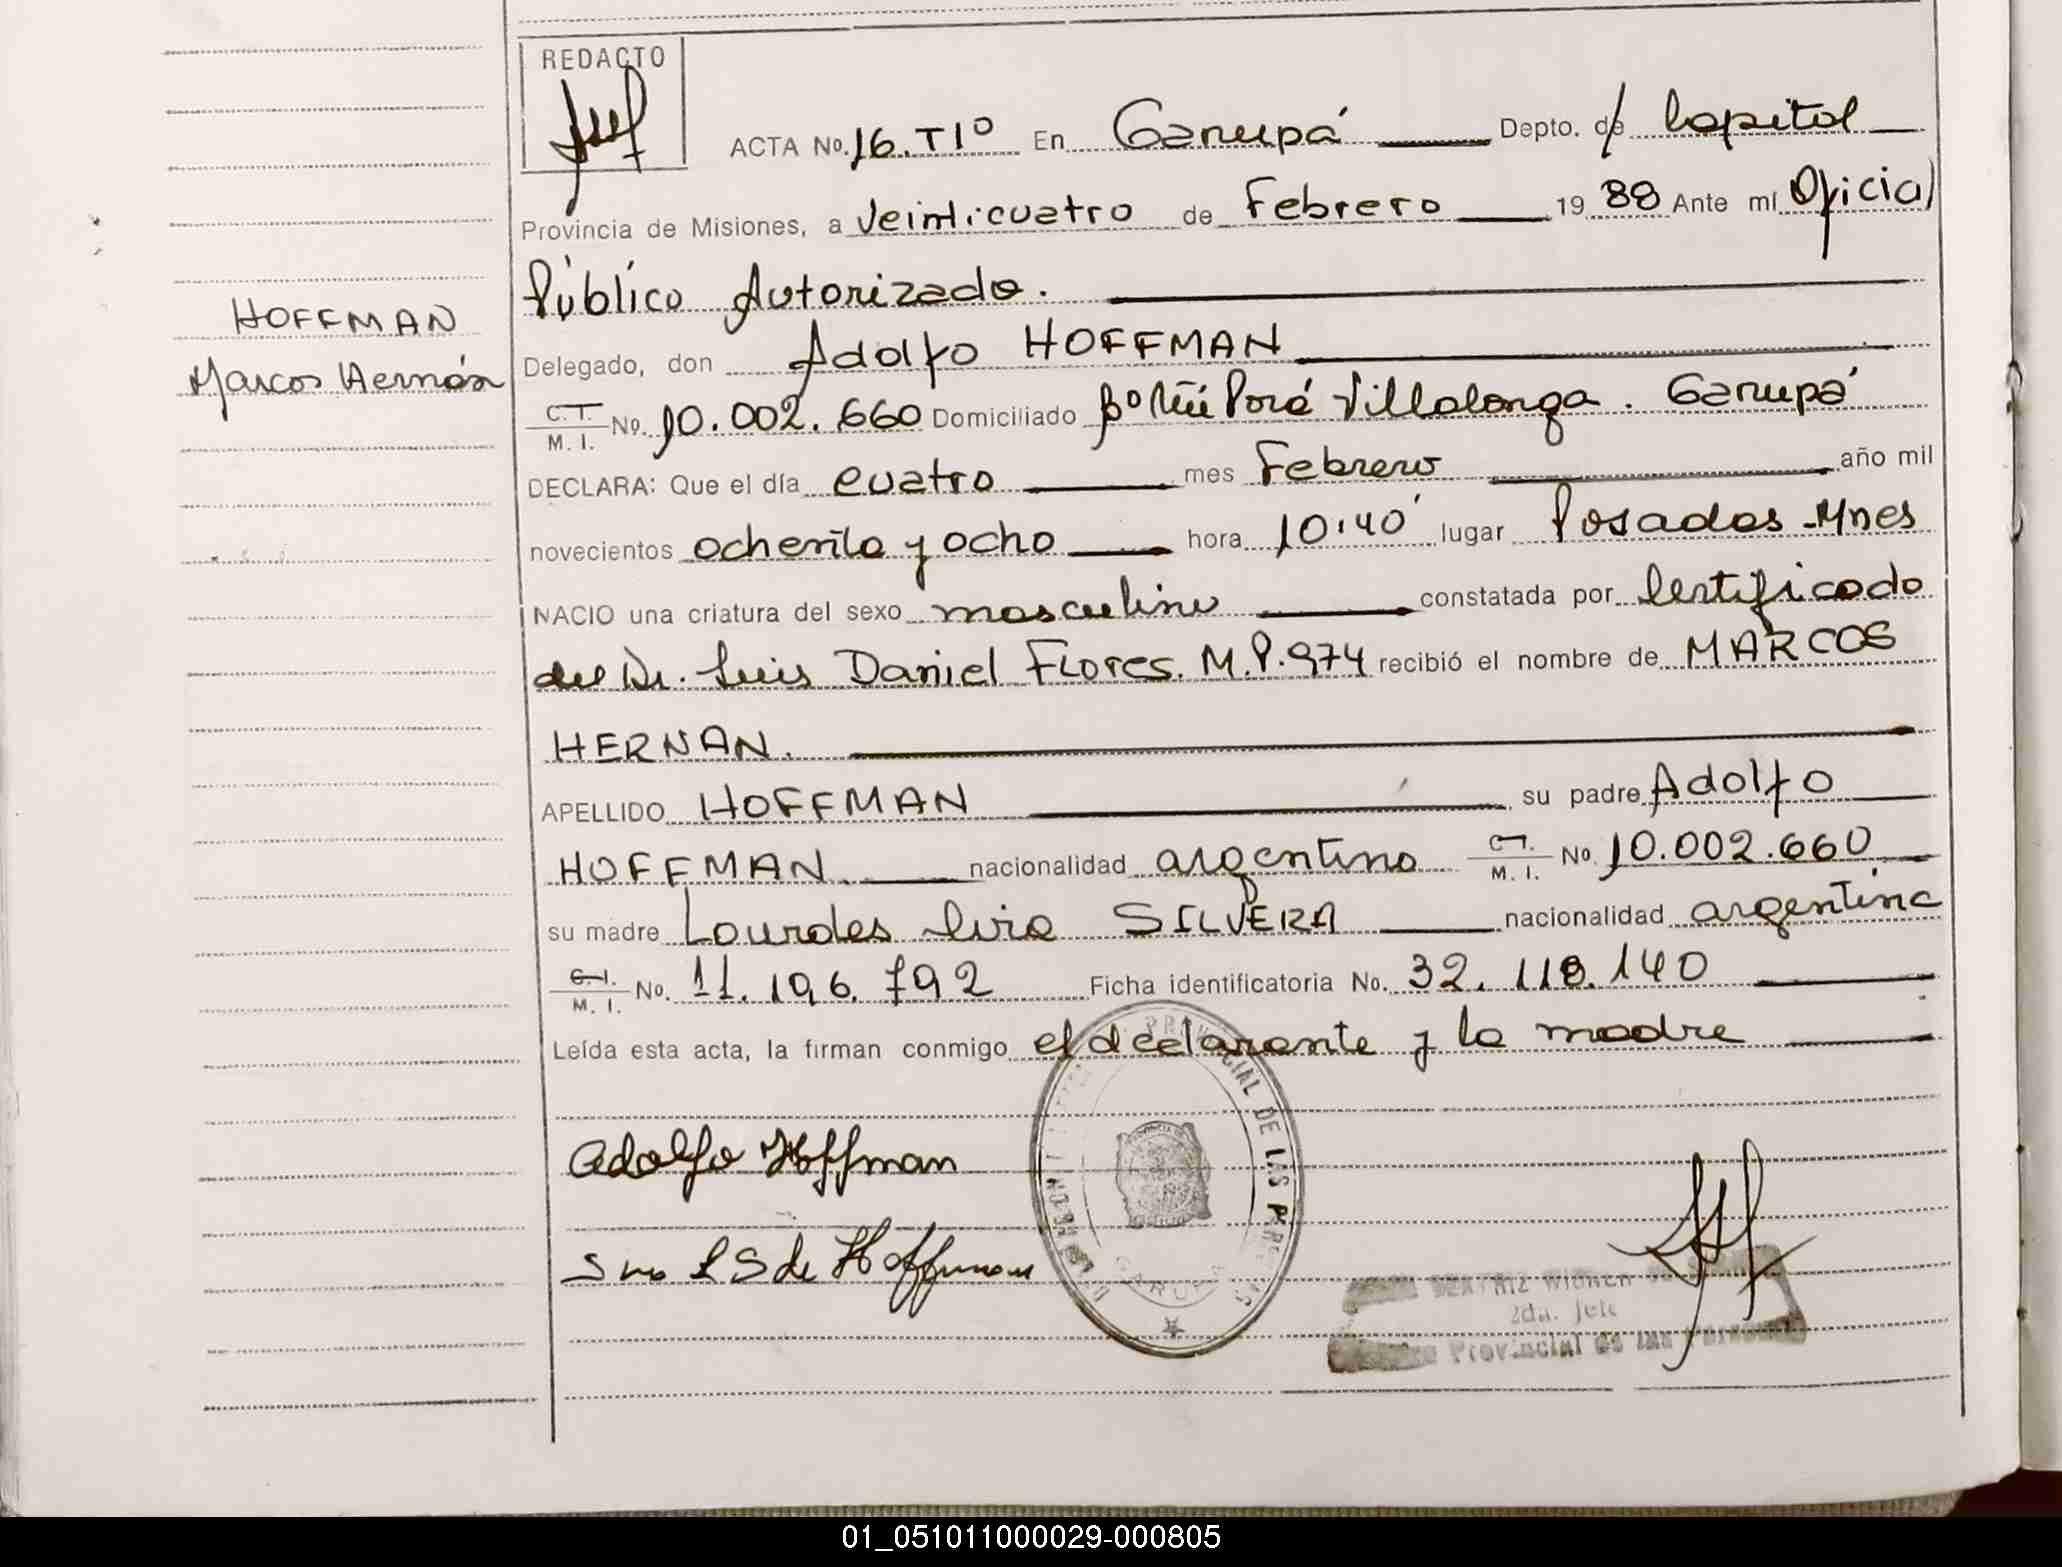 REDACTO
ACTA No. 16. T1º En Garupá Depto. de Capital
Provincia de Misiones, a Veinticuatro de Febrero 19 88 Ante mí Oficial
Público Autorizado.
HOFFMAN
Marcos Hernán
Delegado, don Adolfo HOFFMAN
C.I. M. I. No. 10.002.660 Domiciliado Bº Ñú Porá Villalonga. Garupá
DECLARA: Que el día cuatro mes Febrero año mil
novecientos ochenta y ocho hora 10:40' lugar Posadas-Mnes
NACIO una criatura del sexo masculino constatada por Certificado
del Dr. Luis Daniel Flores. M.P.974 recibió el nombre de MARCOS
HERNAN.
APELLIDO HOFFMAN su padre Adolfo
HOFFMAN nacionalidad argentino C.I. M. I. No. 10.002.660
su madre Lourdes SILVERA nacionalidad argentina
C.I. M. I. No. 11.196.792 Ficha identificatoria No. 32.118.140
Leída esta acta, la firman conmigo el declarante y la madre
Adolfo Hoffman
S de Hoffman
PROVINCIAL DE LAS PERSONAS
GARUPA
BEATRIZ
2da. Jefe
Provincial de las Personas
01_051011000029-000805